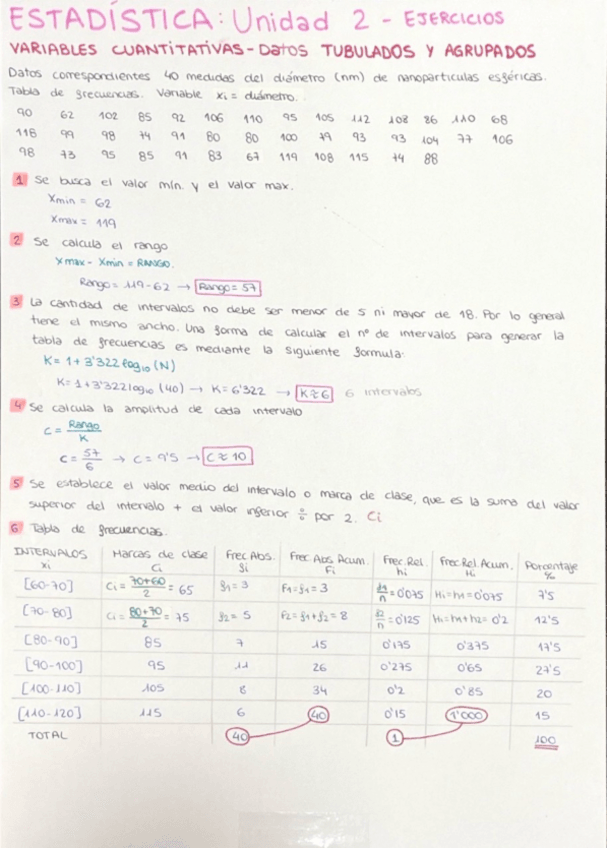 ESTADÍSTICA: Unidad 2 - EJERCICIOS
VARIABLES CUANTITATIVAS - Datos TUBULADOS Y AGRUPADOS
Datos correspondientes 40 medidas del diámetro (nm) de nanoparticulas esféricas.
Tabla de frecuencias. Variable xi = diámetro.
90 62 102 85 92 106 110 95 105 112 108 86 110 68
118 99 98 74 91 80 80 100 79 93 93 104 77 106
98 73 95 85 91 83 67 119 108 115 74 88
1 Se busca el valor mín. y el valor max.
Xmin = 62
Xmax = 119
2 Se calcula el rango
Xmax - Xmin = RANGO.
Rango = 119 - 62 → Rango = 57
3 La cantidad de intervalos no debe ser menor de 5 ni mayor de 18. Por lo general
tiene el mismo ancho. Una forma de calcular el nº de intervalos para generar la
tabla de frecuencias es mediante la siguiente formula:
K = 1 + 3'322 log10 (N)
K = 1 + 3'322 log10 (40) → K = 6'322 → K ≈ 6 6 intervalos
4 Se calcula la amplitud de cada intervalo
C = Rango / K
C = 57 / 6 → C = 9'5 → C ≈ 10
5 Se establece el valor medio del intervalo o marca de clase, que es la suma del valor
superior del intervalo + el valor inferior ÷ por 2. Ci
6 Tabla de frecuencias.
INTERVALOS xi Marcas de clase Ci Frec Abs. fi Frec Abs Acum. Fi Frec. Rel. hi Frec Rel. Acum. Hi Porcentaje %
[60-70] C1 = 70+60 / 2 = 65 f1 = 3 F1 = f1 = 3 f1/n = 0'075 H1 = h1 = 0'075 7'5
[70-80] Ci = 80+70 / 2 = 75 f2 = 5 F2 = f1 + f2 = 8 f2/n = 0'125 Hi = h1 + h2 = 0'2 12'5
[80-90] 85 7 15 0'175 0'375 17'5
[90-100] 95 11 26 0'275 0'65 27'5
[100-110] 105 8 34 0'2 0'85 20
[110-120] 115 6 40 0'15 1'000 15
TOTAL 40 1 100